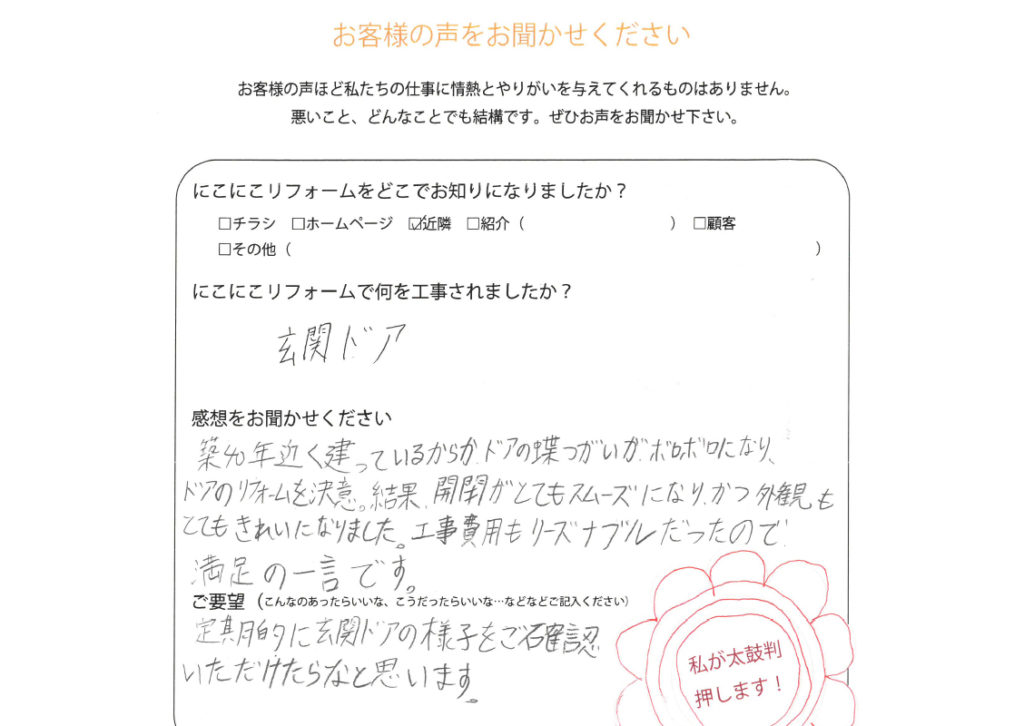 お客様の声をお聞かせください
お客様の声ほど私たちの仕事に情熱とやりがいを与えてくれるものはありません。
悪いこと、どんなことでも結構です。ぜひお声をお聞かせ下さい。
にこにこリフォームをどこでお知りになりましたか？
□チラシ □ホームページ ☑近隣 □紹介（ ） □顧客
□その他（ ）
にこにこリフォームで何を工事されましたか？
玄関ドア
感想をお聞かせください
築40年近く建っているからか、ドアの蝶つがいが、ボロボロになり、
ドアのリフォームを決意。結果、開閉がとてもスムーズになり、かつ外観も
とてもきれいになりました。工事費用もリーズナブルだったので
満足の一言です。
ご要望（こんなのあったらいいな、こうだったらいいな…などなどご記入ください）
定期的に玄関ドアの様子をご確認
いただけたらなと思います。
私が太鼓判
押します！